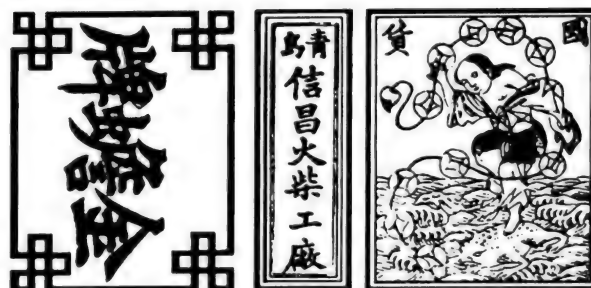 金蟾牌
青島
信昌火柴工廠
國貨